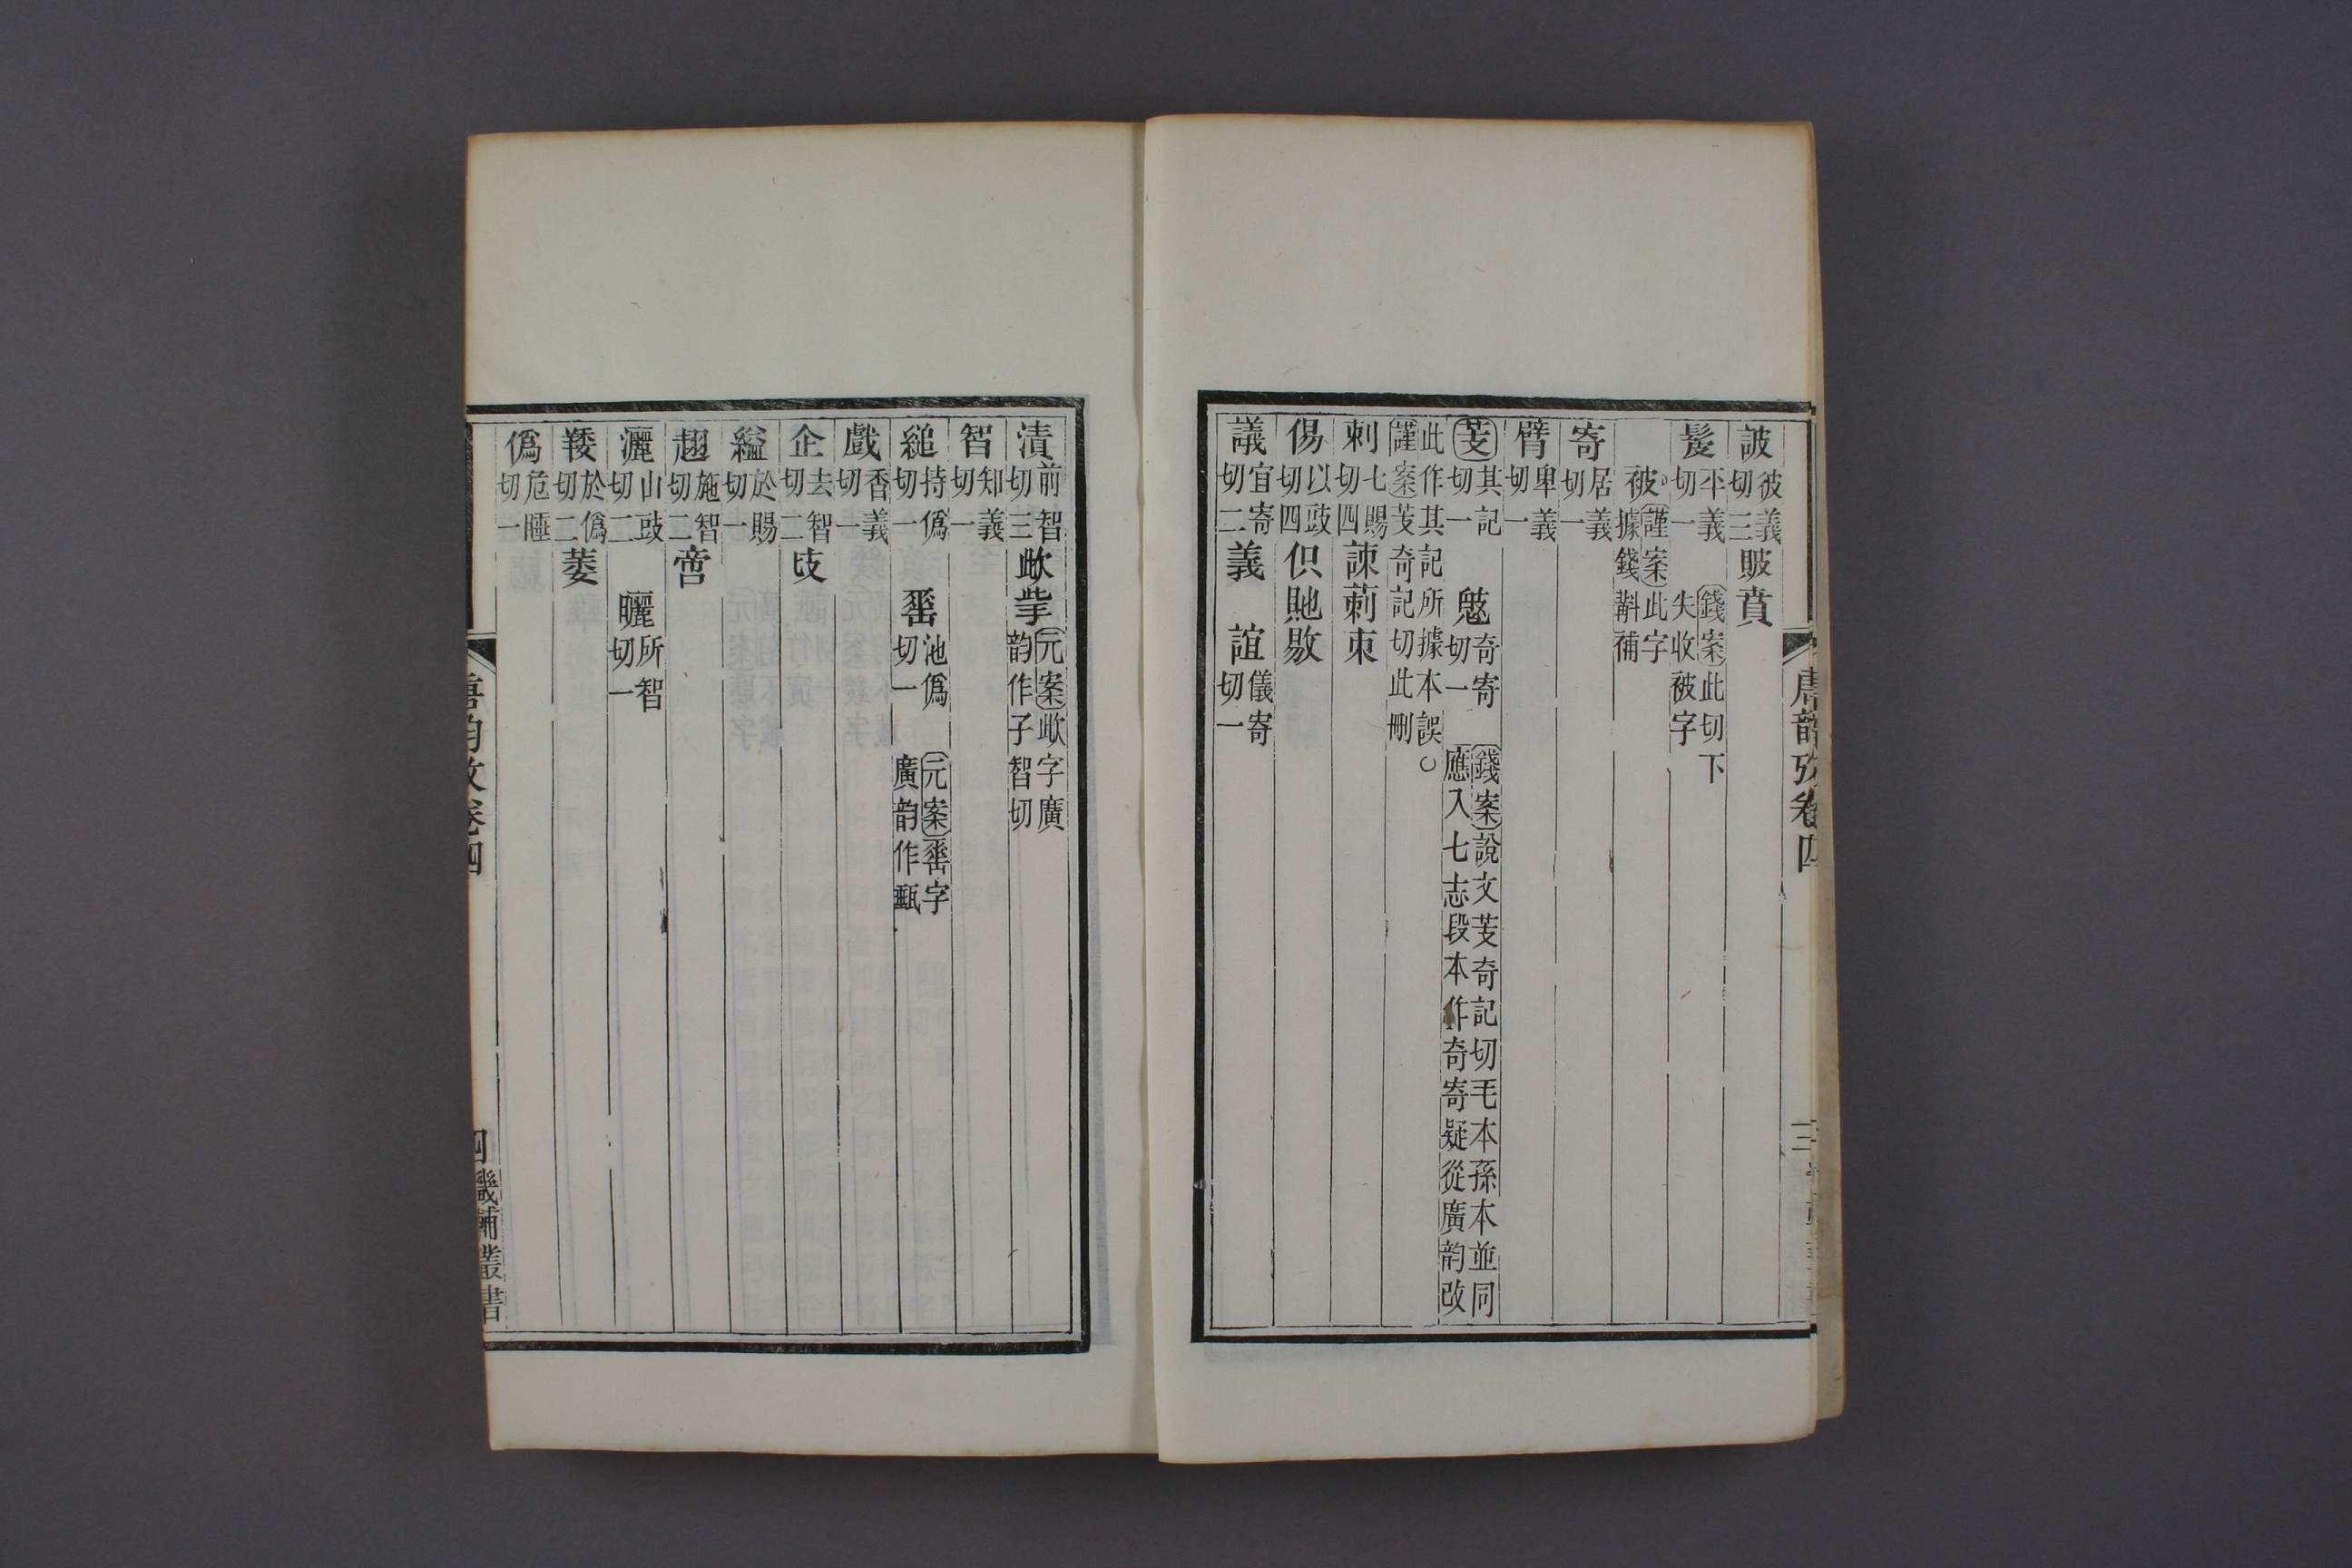 詖彼義切三貱賁
髲平義切一 錢案此切下失收被字
被謹案此字據錢斠補
寄居義切一
臂卑義切一
芰其記切一 鬾奇寄切一 錢案說文芰奇記切毛本孫本並同應入七志段本作奇寄疑從廣韵改
此作其記所據本誤○謹案芰奇記切此刪
刺七賜切四諫莿朿
傷以豉切四伿貤敡
議宜寄切二義 誼儀寄切一
唐韵攷卷四
三
漬前智切三㱴骴元案㱴字廣韵作子智切
智知義切一
縋持偽切一 𦉈池偽切一 元案𦉈字廣韵作甀
戲香義切一
企去智切二𠈮
縊於賜切一
翅施智切二啻
灑山豉切二 曬所智切一
䍴於偽切二萎
偽危睡切一
唐韵攷卷四
四
畿輔叢書